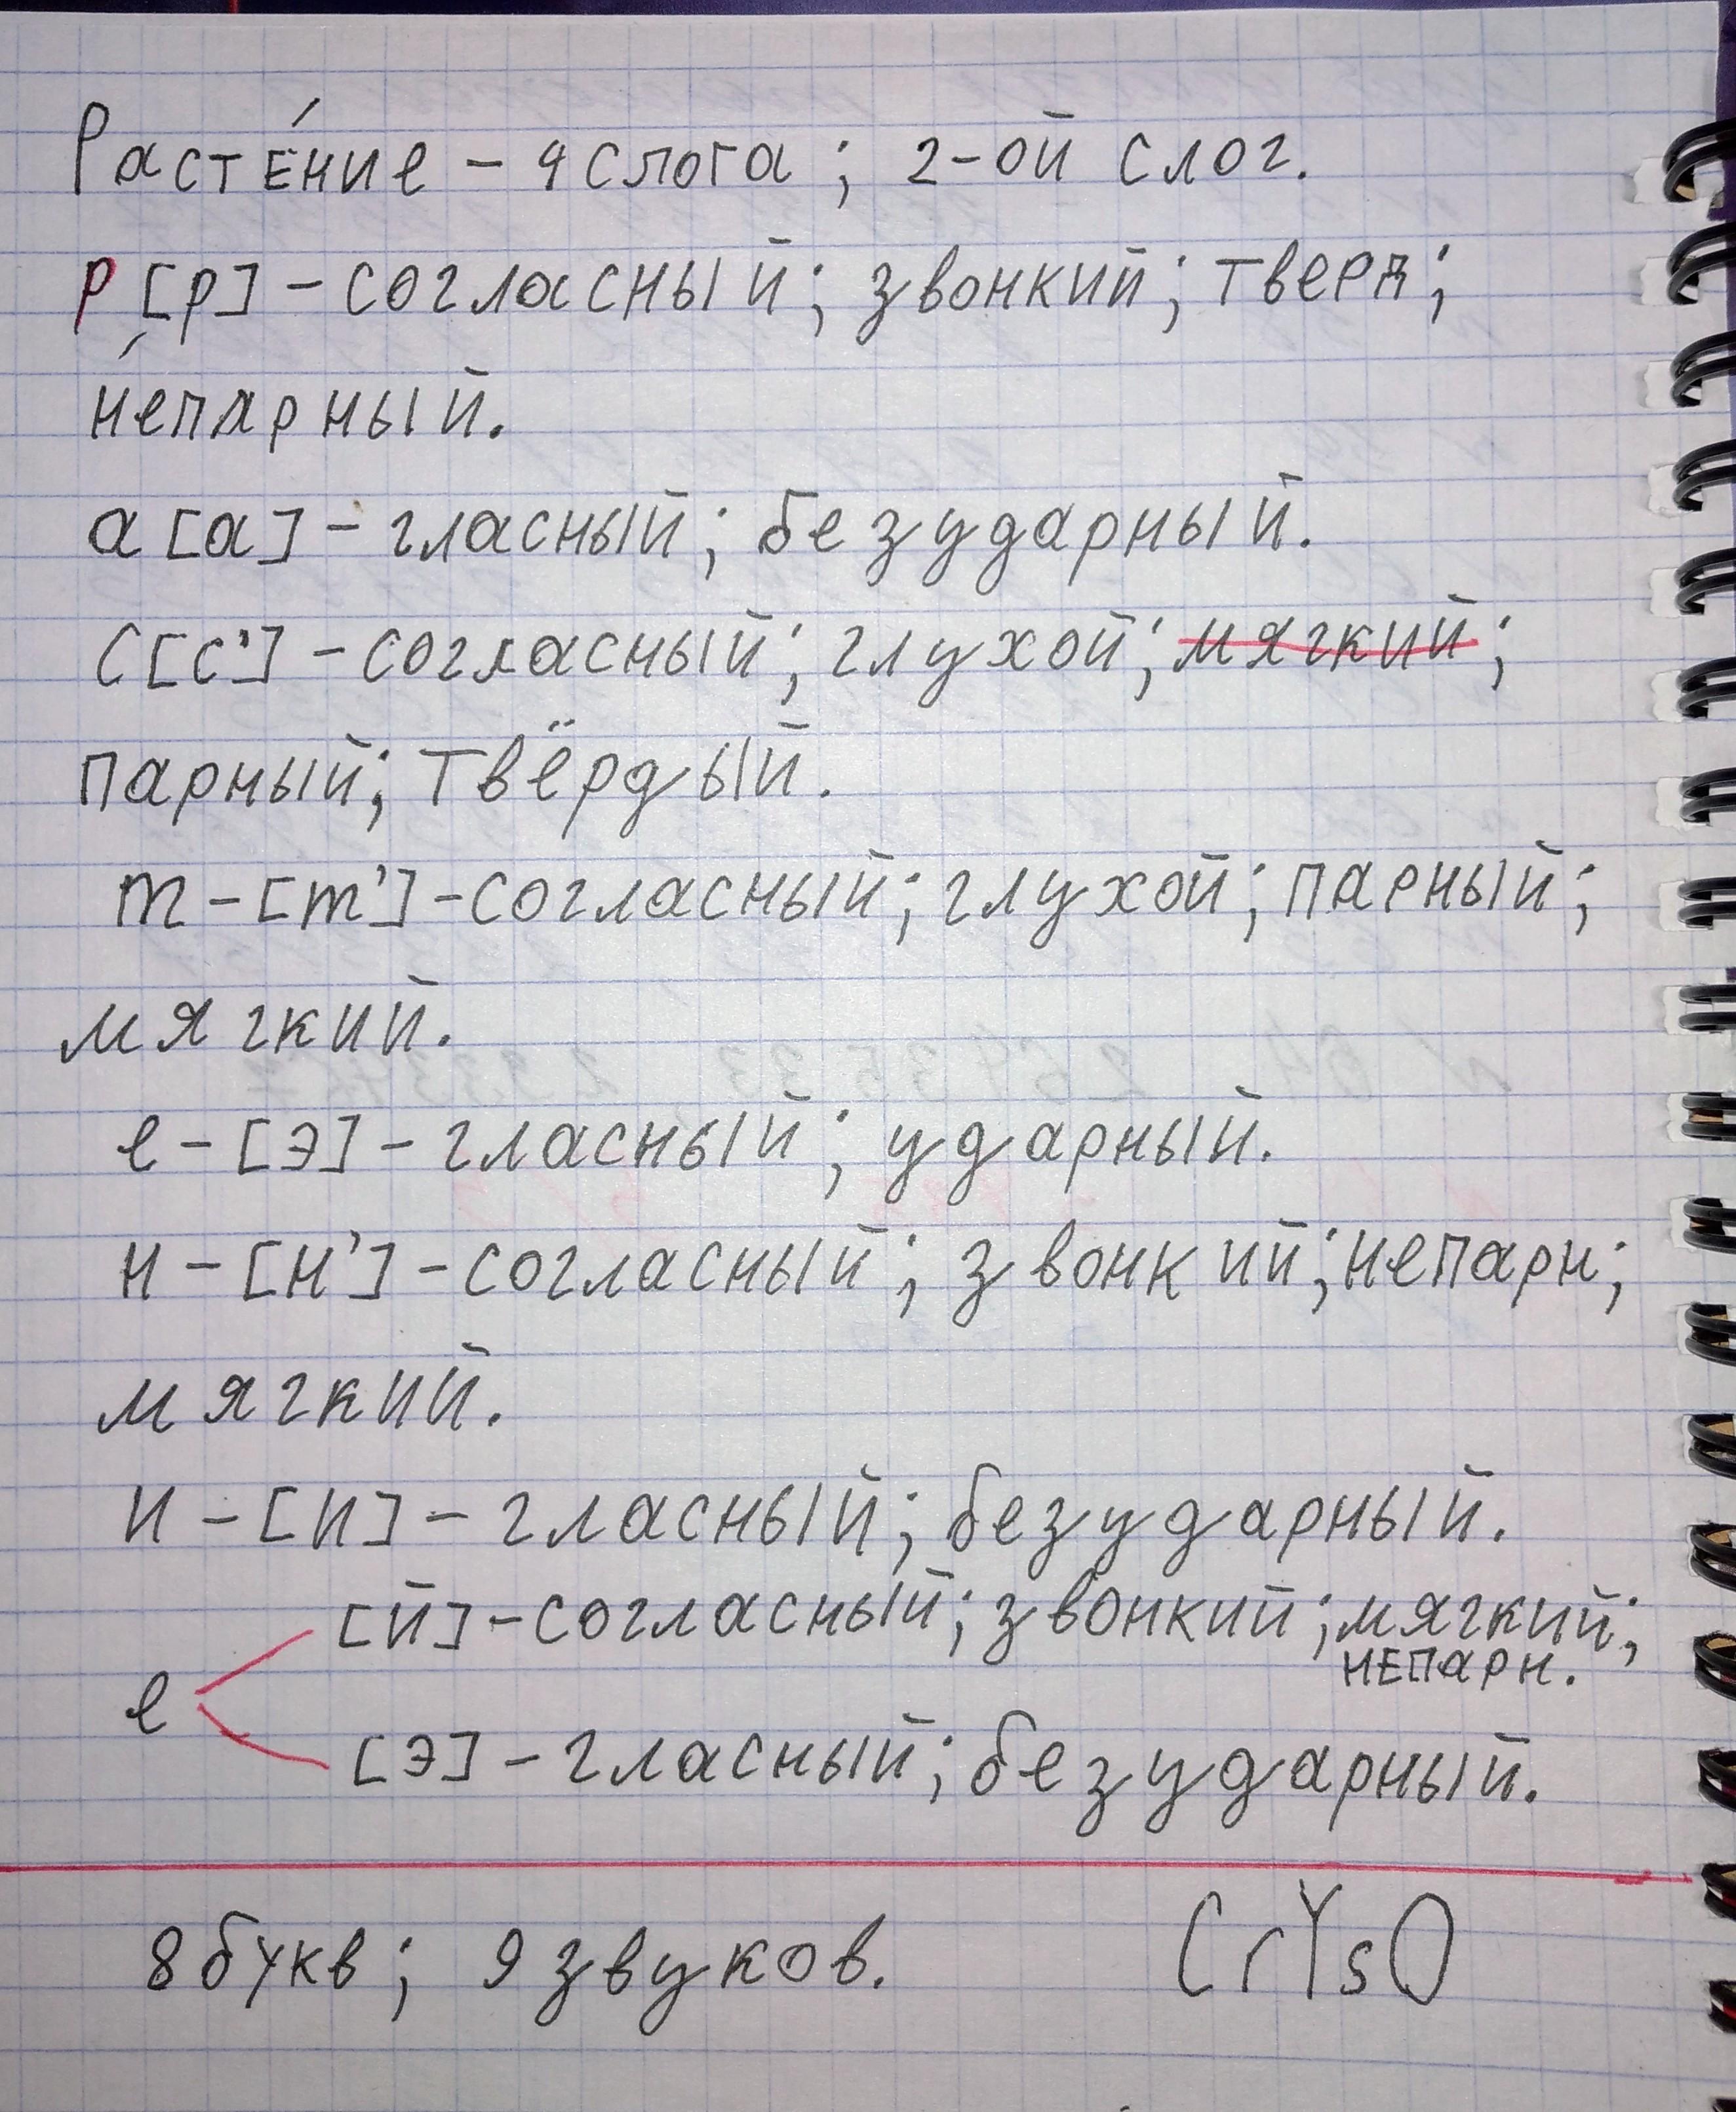 Расте́ние – 4 слога; 2-ой слог.
р [р] – согласный; звонкий; тверд;
непарный.
а [а] – гласный; безударный.
С [с'] – согласный; глухой; мягкий;
парный; твёрдый.
т – [т'] – согласный; глухой; парный;
мягкий.
е – [э] – гласный; ударный.
н – [н'] – согласный; звонкий; непарн;
мягкий.
и – [и] – гласный; безударный.
[й] – согласный; звонкий; мягкий;
непарн.
е
[э] – гласный; безударный.
8 букв; 9 звуков.
CrYsO